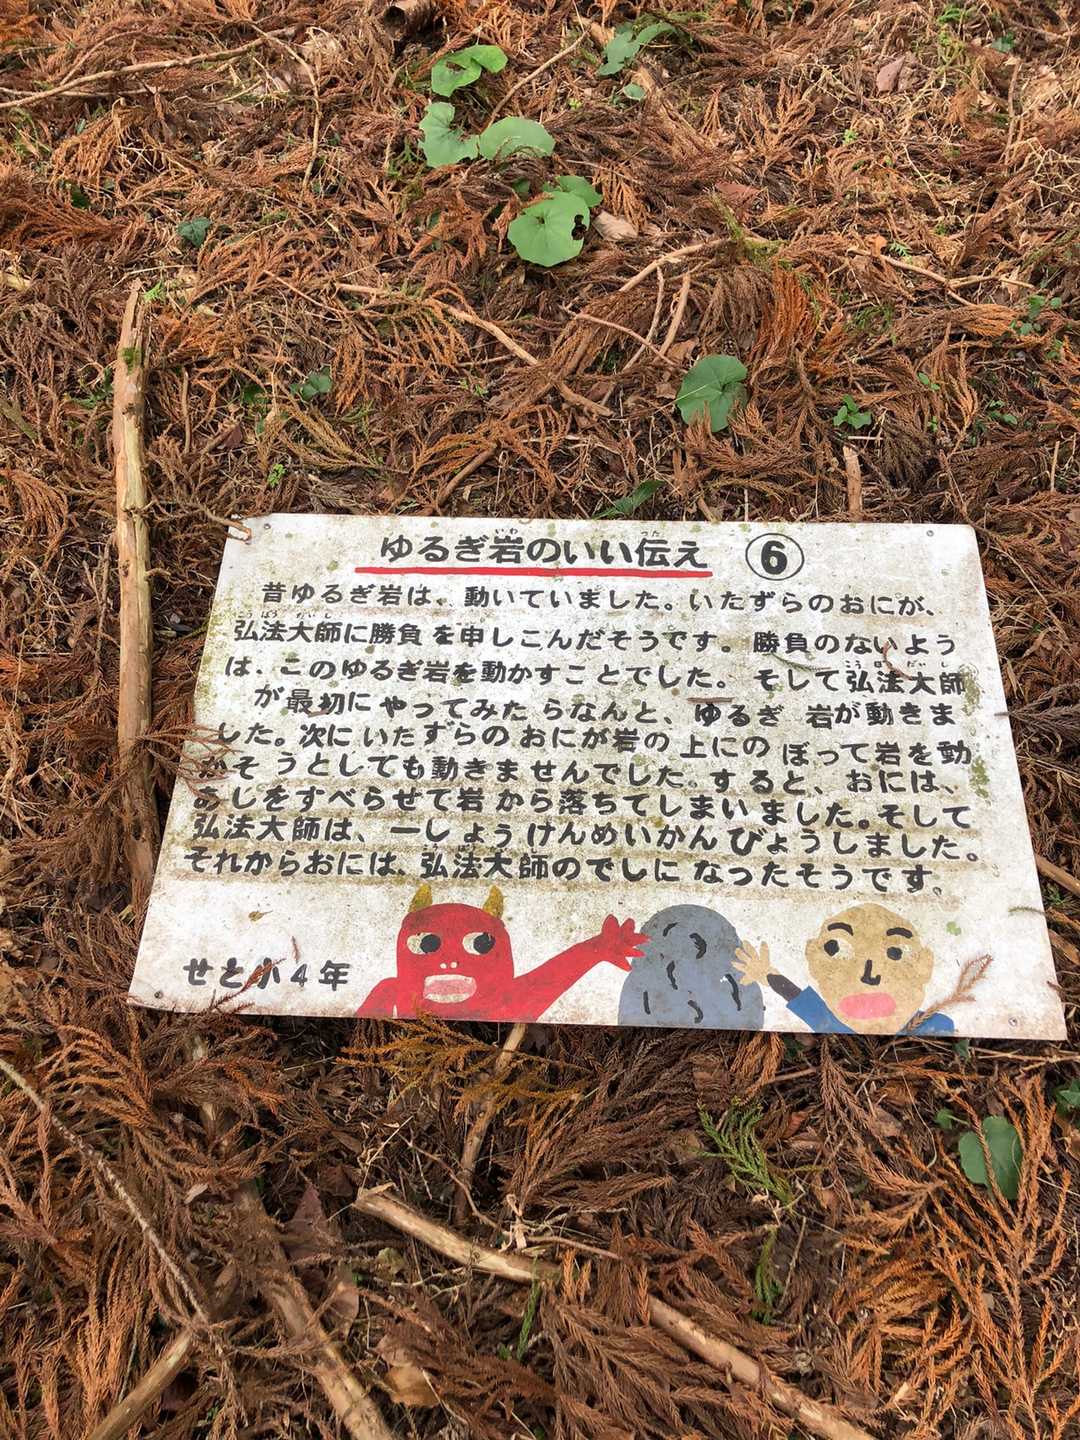 ゆるぎ岩のいい伝え ⑥
昔ゆるぎ岩は、動いていました。いたずらのおにが、
弘法大師に勝負を申しこんだそうです。勝負のないよう
は、このゆるぎ岩を動かすことでした。そして弘法大師
が最初にやってみたらなんと、ゆるぎ岩が動きま
した。次にいたずらのおにが岩の上にのぼって岩を動
かそうとしても動きませんでした。すると、おには、
あしをすべらせて岩から落ちてしまいました。そして
弘法大師は、一しょうけんめいかんびょうしました。
それからおには、弘法大師のでしになったそうです。
せと小4年